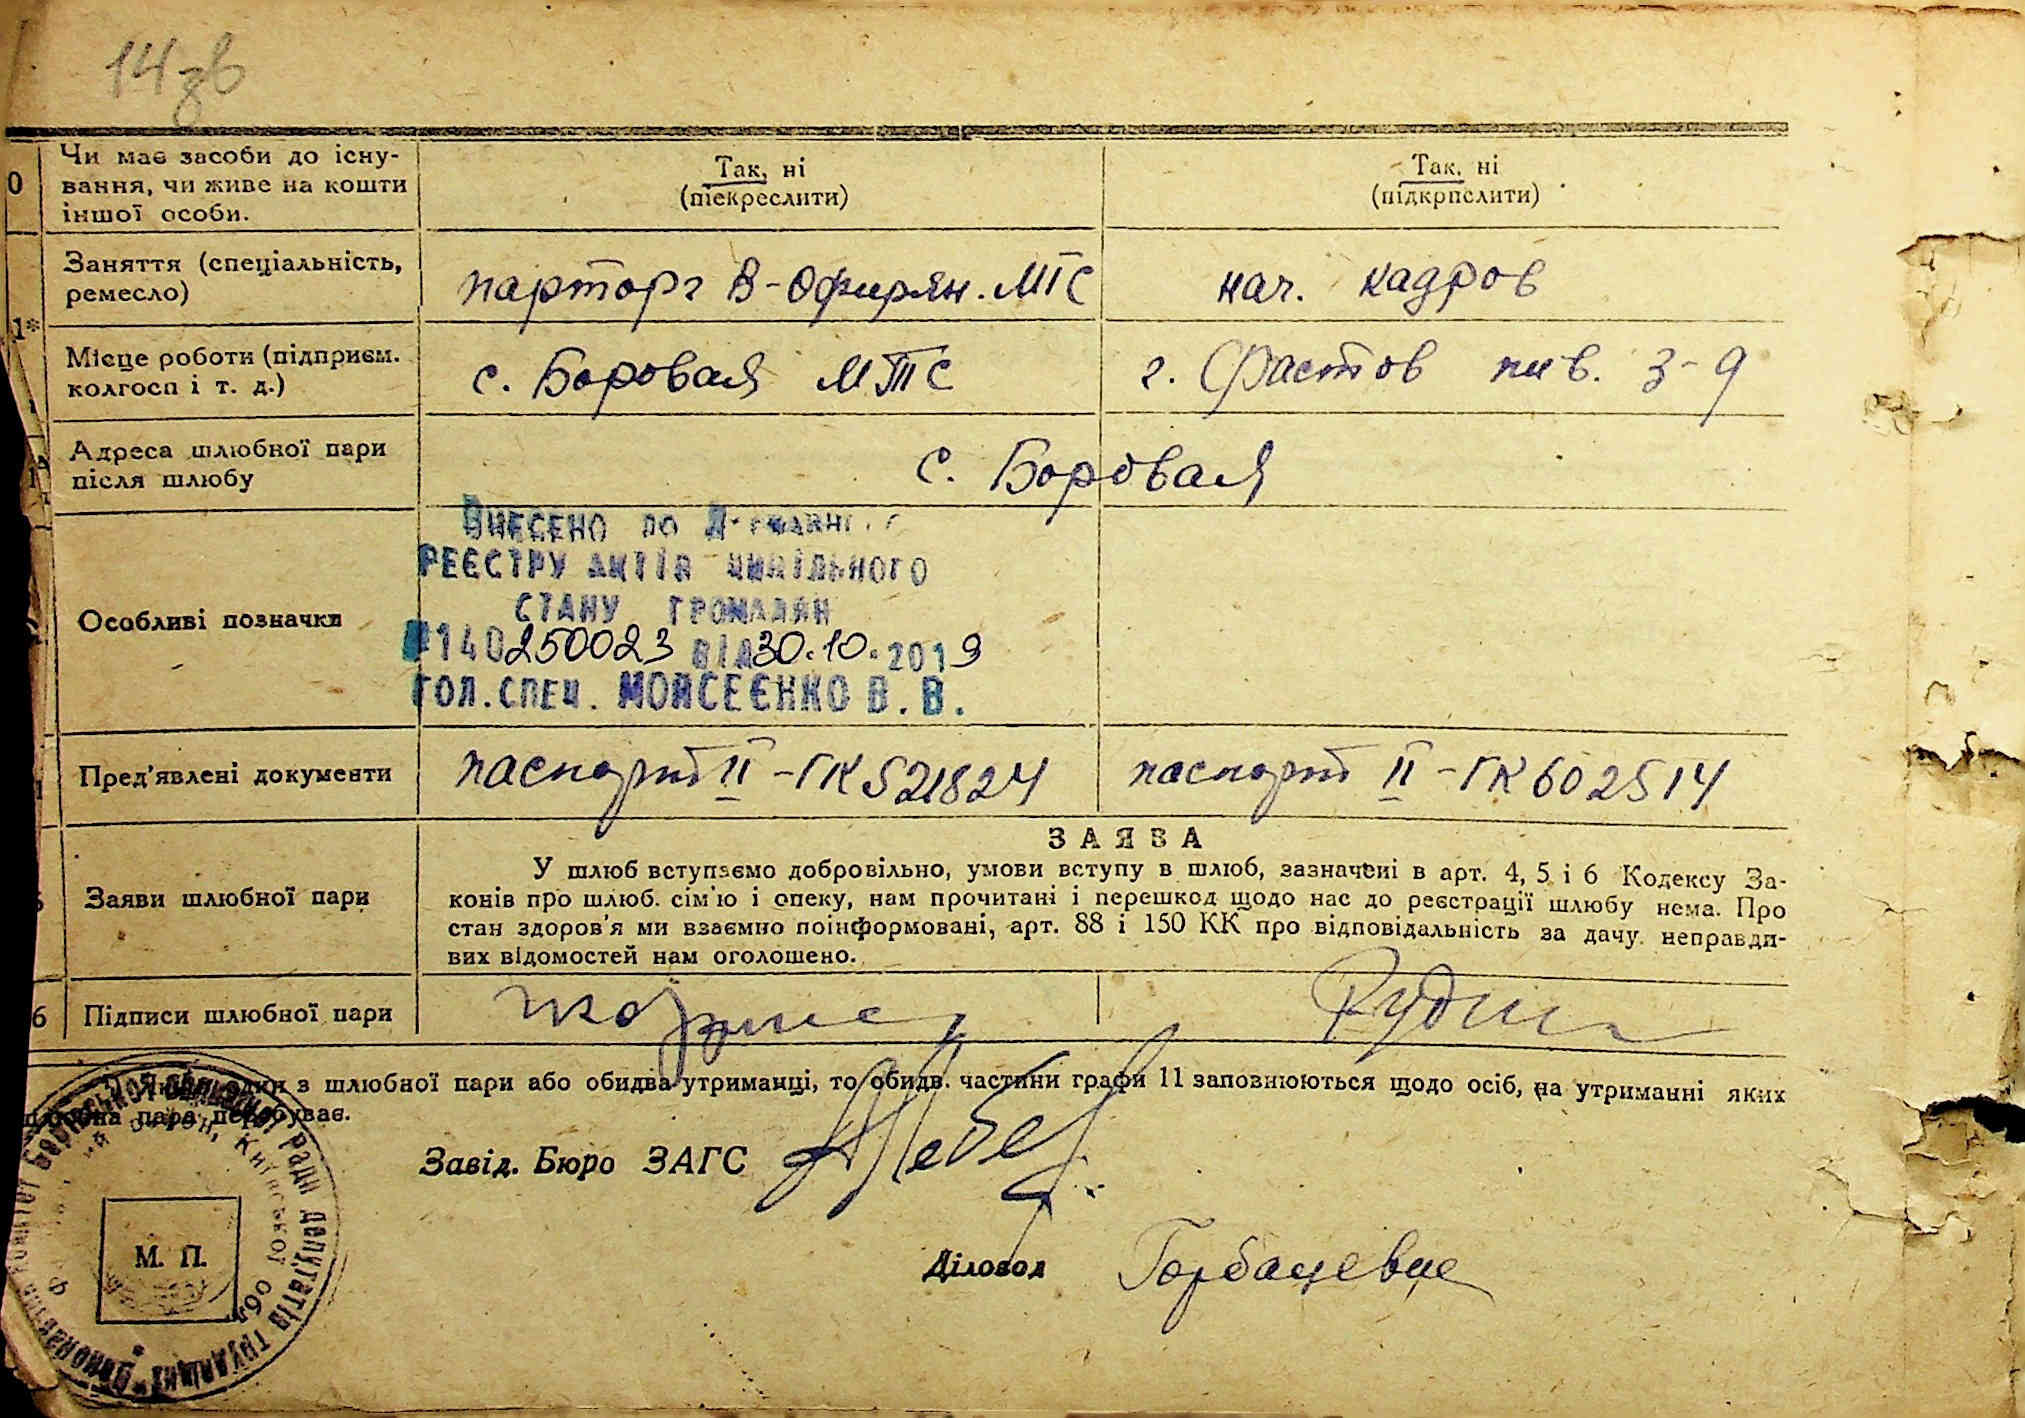 14зв
0
Чи має засоби до існу-
вання, чи живе на кошти
іншої особи.
Так, ні
(піекреслити)
Так, ні
(підкрпслити)
1*
Заняття (спеціальність,
ремесло)
парторг В-Офирян. МТС
нач. кадров
Місце роботи (підприєм.
колгосп і т. д.)
с. Боровая МТС
г. Фастов пив. з-д
Адреса шлюбної пари
після шлюбу
с. Боровая
Особливі позначки
ВНЕСЕНО ДО
РЕЄСТРУ АКТІВ ЦИВІЛЬНОГО
СТАНУ ГРОМАДЯН
№140250023 ВІД 30.10.2019
ГОЛ.СПЕЦ. МОЙСЕЄНКО В.В.
Пред'явлені документи
паспорт II-ГК 521824
паспорт II-ГК 602514
ЗАЯВА
Заяви шлюбної пари
У шлюб вступаємо добровільно, умови вступу в шлюб, зазначені в арт. 4, 5 і 6 Кодексу За-
конів про шлюб. сім'ю і опеку, нам прочитані і перешкод щодо нас до реєстрації шлюбу нема. Про
стан здоров'я ми взаємно поінформовані, арт. 88 і 150 КК про відповідальність за дачу неправди-
вих відомостей нам оголошено.
6
Підписи шлюбної пари
один з шлюбної пари або обидва утриманці, то обидв. частини графи 11 заповнюються щодо осіб, на утриманні яких
пара перебуває.
Завід. Бюро ЗАГС
Діловод
М. П.
ради депутатів трудящих
Київської обл.